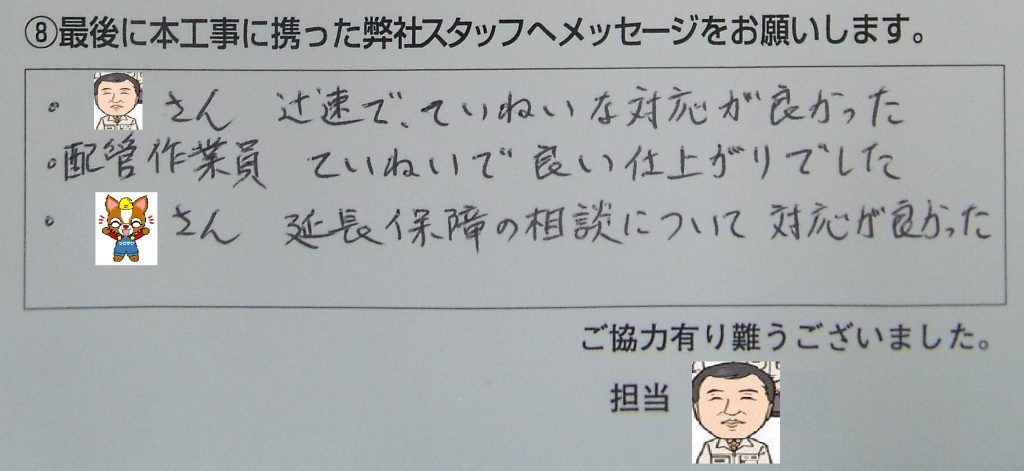 ⑧最後に本工事に携った弊社スタッフへメッセージをお願いします。
・ さん 辻速で、ていねいな対応が良かった
・配管作業員 ていねいで良い仕上がりでした
・ さん 延長保障の相談について 対応が良かった
ご協力有り難うございました。
担当